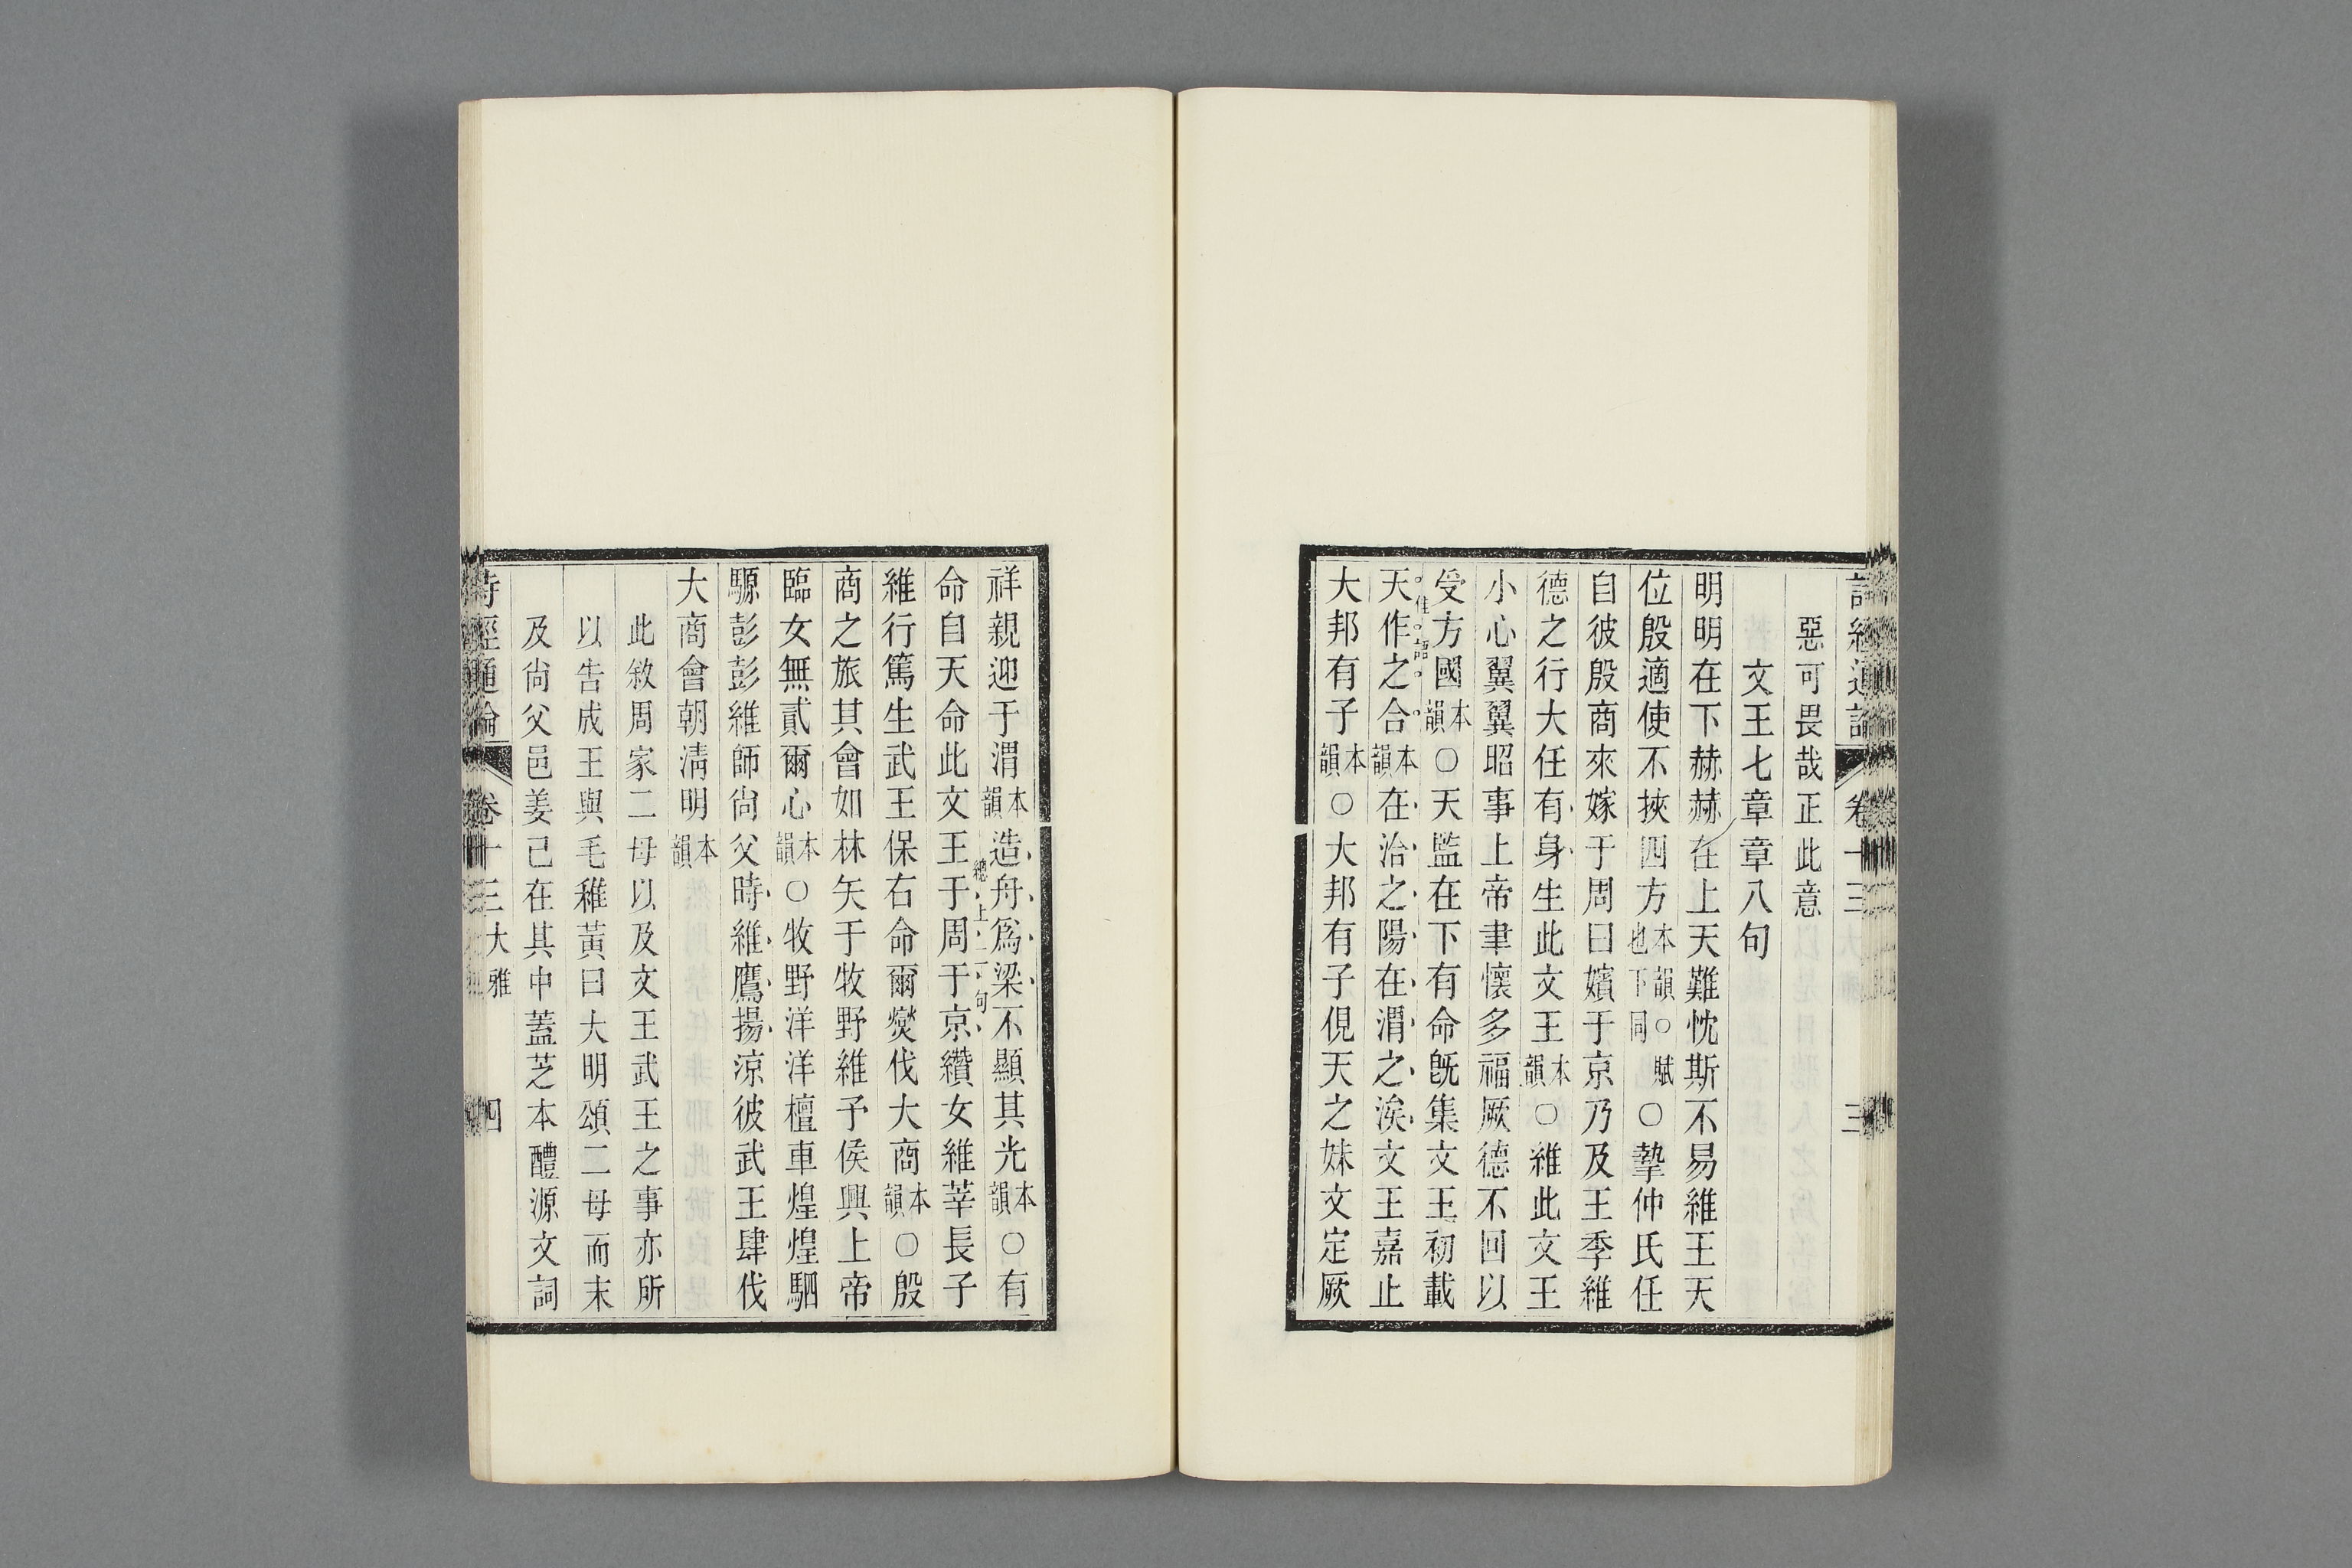 惡可畏哉正此意
文王七章章八句
明明在下赫赫在上天難忱斯不易維王天
位殷適使不挾四方本韻也下同○賦○摯仲氏任
自彼殷商來嫁于周曰嬪于京乃及王季維
德之行大任有身生此文王本韻○維此文王
小心翼翼昭事上帝聿懷多福厥德不回以
受方國本韻○天監在下有命旣集文王初載
佳語
天作之合本韻在洽之陽在渭之涘文王嘉止
大邦有子本韻○大邦有子俔天之妹文定厥
祥親迎于渭本韻造舟爲梁不顯其光本韻○有
總上二句
命自天命此文王于周于京纘女維莘長子
維行篤生武王保右命爾燮伐大商本韻○殷
商之旅其會如林矢于牧野維予侯興上帝
臨女無貳爾心本韻○牧野洋洋檀車煌煌駟
騵彭彭維師尙父時維鷹揚涼彼武王肆伐
大商會朝淸明本韻
此敘周家二母以及文王武王之事亦所
以告成王與毛稚黃曰大明頌二母而末
及尙父邑姜己在其中蓋芝本醴源文詞
詩經通論 卷十三大雅 四